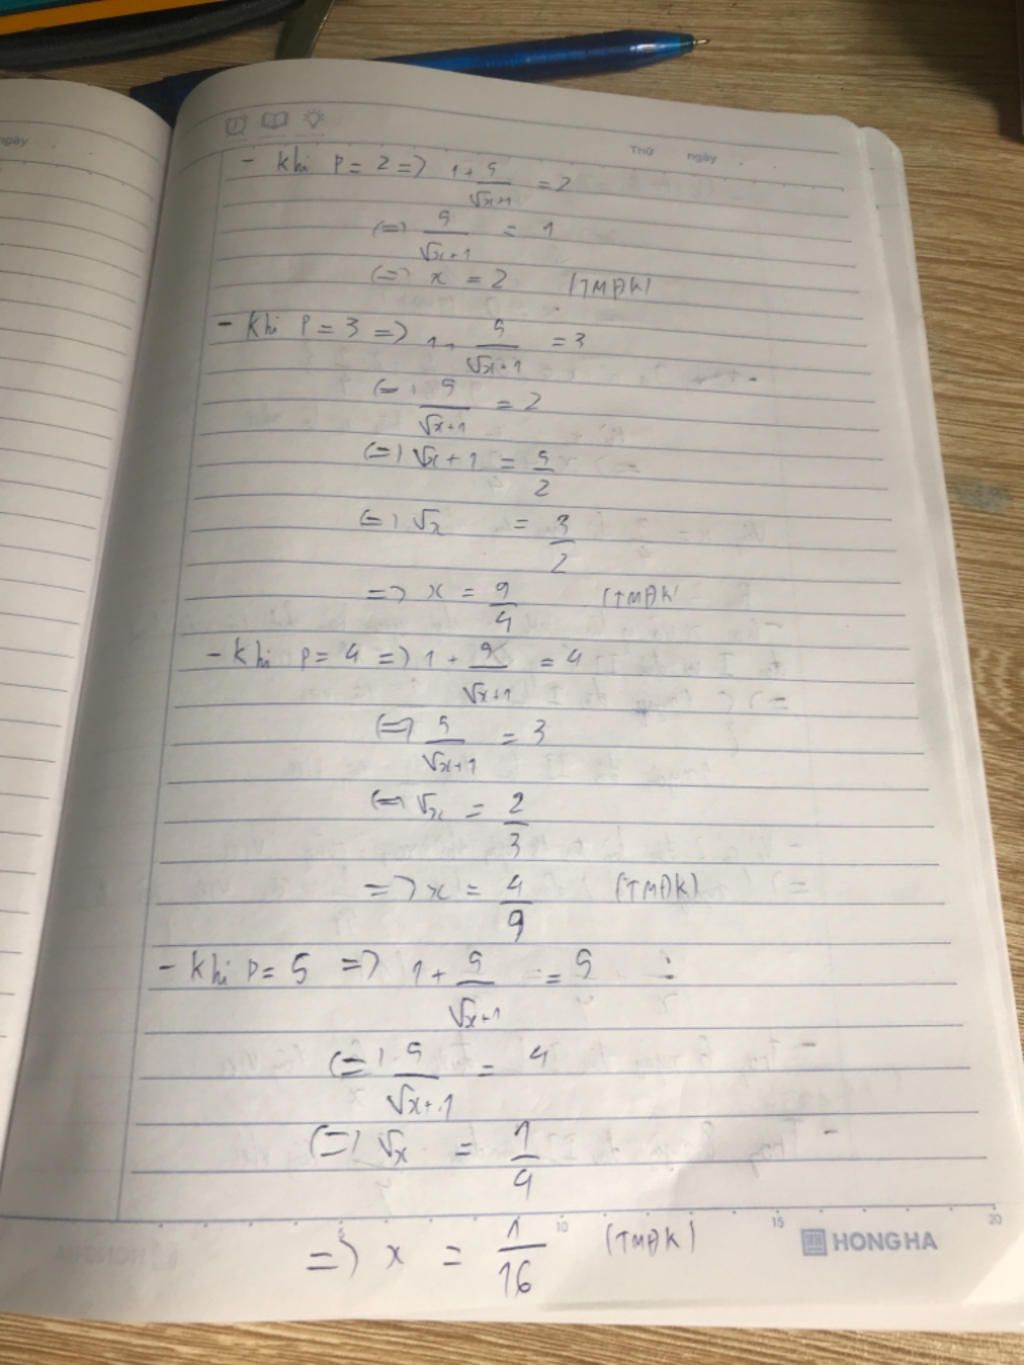 ngày
Thứ ngày
- Khi P = 2 => 1 + 5/(√x+1) = 2
<=> 5/(√x+1) = 1
<=> x = 2 (TMĐK)
- Khi P = 3 => 1 + 5/(√x+1) = 3
<=> 5/(√x+1) = 2
<=> √x + 1 = 5/2
<=> √x = 3/2
=> x = 9/4 (TMĐK
- Khi P = 4 => 1 + 5/(√x+1) = 4
<=> 5/(√x+1) = 3
<=> √x = 2/3
=> x = 4/9 (TMĐK)
- Khi P = 5 => 1 + 5/(√x+1) = 5
<=> 5/(√x+1) = 4
<=> √x = 1/4
5 10 15 20
=> x = 1/16 (TMĐK)
HONG HA